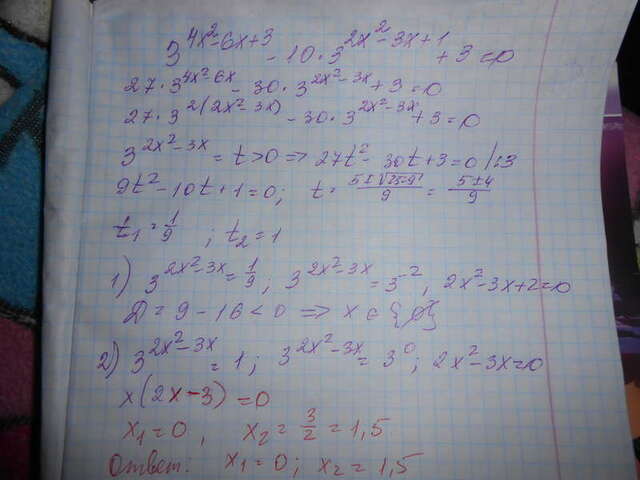 3^(4x²-6x+3) - 10·3^(2x²-3x+1) + 3 = 0
27·3^(4x²-6x) - 30·3^(2x²-3x) + 3 = 0
27·3^(2(2x²-3x)) - 30·3^(2x²-3x) + 3 = 0
3^(2x²-3x) = t > 0 => 27t² - 30t + 3 = 0 |:3
9t² - 10t + 1 = 0; t = (5±√(25-9))/9 = (5±4)/9
t₁ = 1/9 ; t₂ = 1
1) 3^(2x²-3x) = 1/9 ; 3^(2x²-3x) = 3^(-2), 2x²-3x+2=0
D = 9 - 16 < 0 => x ∈ {∅}
2) 3^(2x²-3x) = 1; 3^(2x²-3x) = 3^0; 2x²-3x=0
x(2x-3) = 0
x₁ = 0, x₂ = 3/2 = 1,5
Ответ: x₁ = 0; x₂ = 1,5